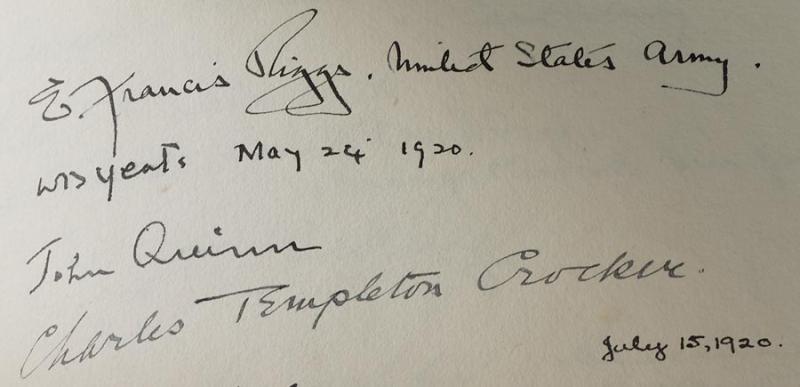 E. Francis Riggs. United States Army.
WB Yeats May 24 1920.
John Quinn
Charles Templeton Crocker.
July 15, 1920.